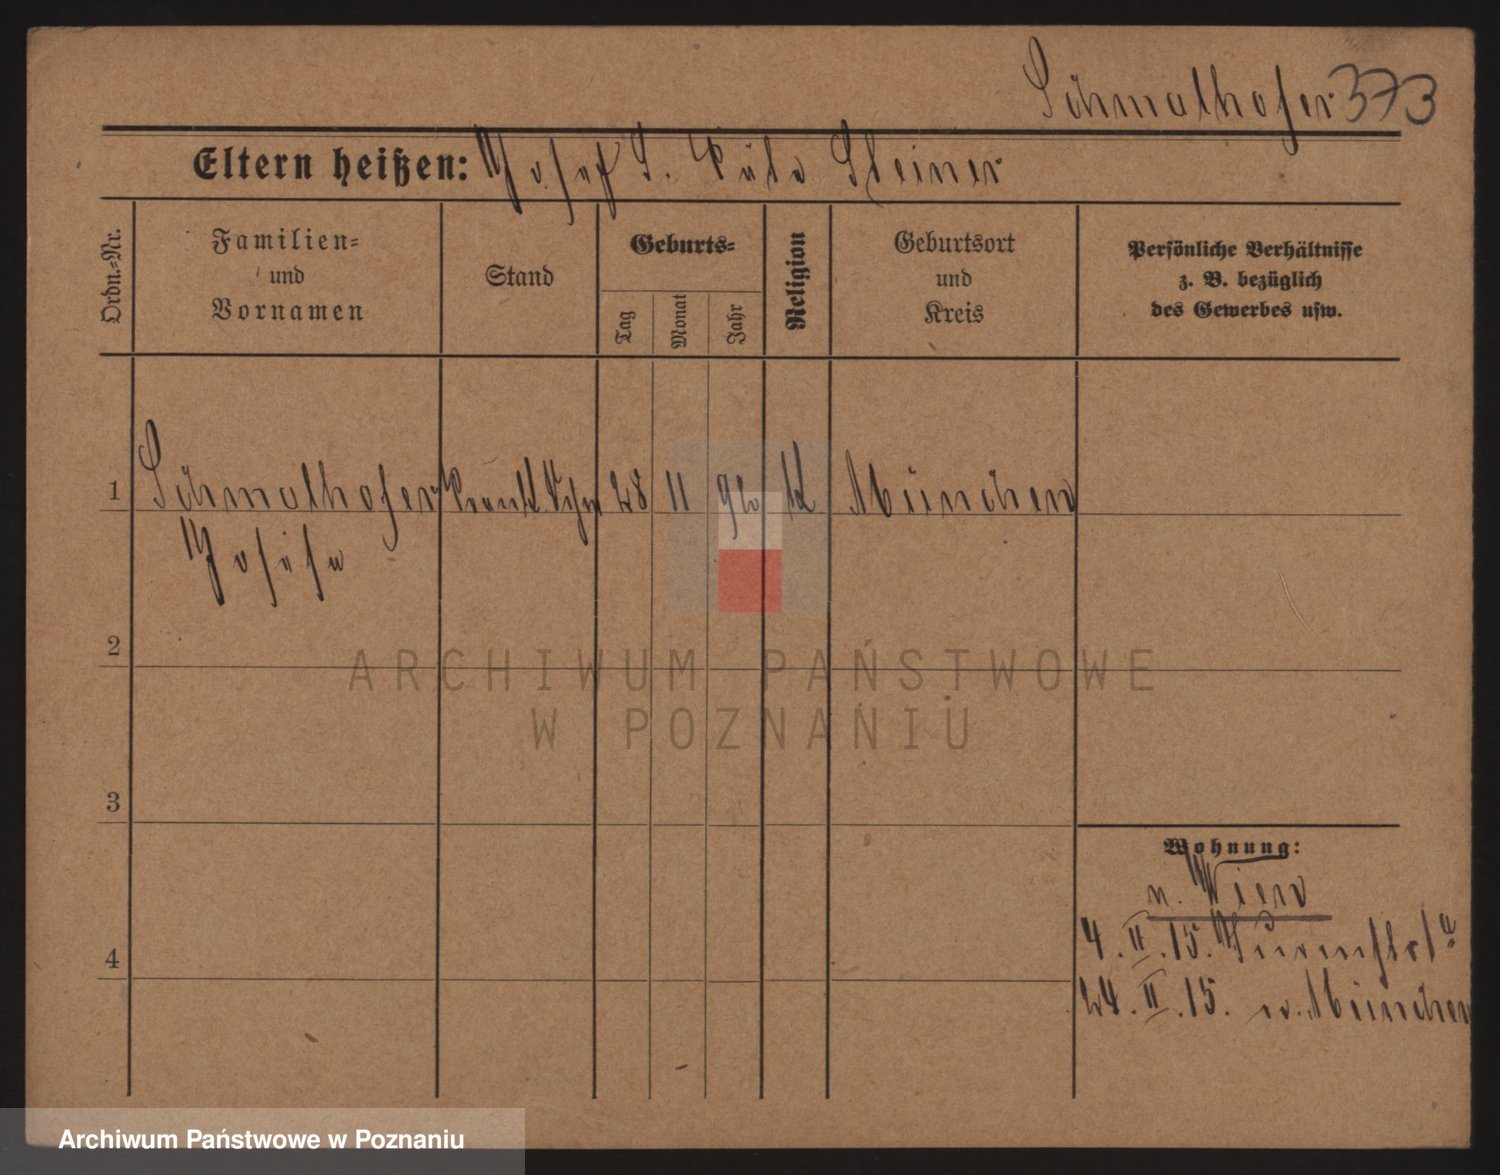 Schmalhofer 373
Eltern heißen: Josef S. Steiner
Ordn.-Nr.
Familien-
und
Vornamen
Stand
Geburts-
Tag
Monat
Jahr
Religion
Geburtsort
und
Kreis
Persönliche Verhältnisse
z. B. bezüglich
des Gewerbes usw.
1 Schmalhofer 28 11 K München
Josefa
2
ARCHIWUM PAŃSTWOWE
W POZNANIU
3
Wohnung:
n. Wien
4
4. II. 15.
24. II. 15. v. München
Archiwum Państwowe w Poznaniu